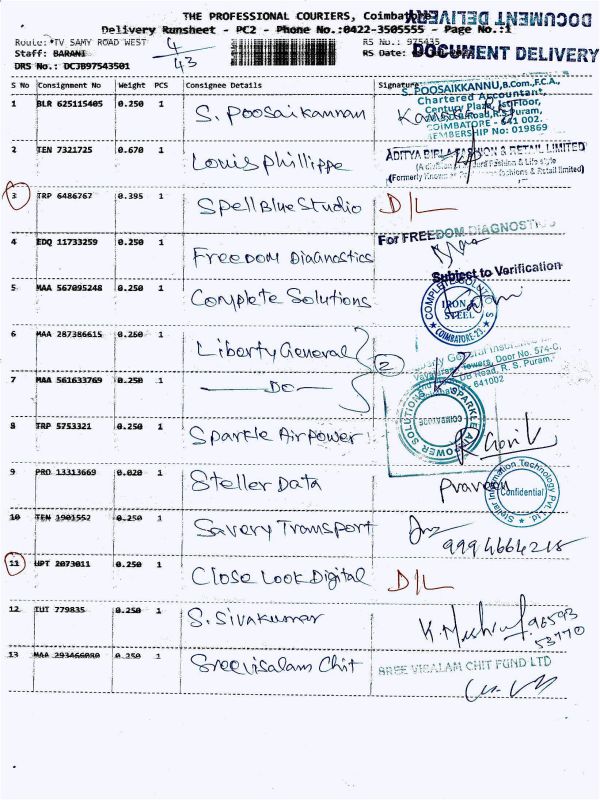 THE PROFESSIONAL COURIERS, Coimbatore
DOCUMENT DELIVERY
Delivery Runsheet - PC2 - Phone No.:0422-3505555 - Page No.:1
Route: TV SAMY ROAD WEST 4/43 RS No.: 975435
DOCUMENT DELIVERY
Staff: BARANI RS Date:
DRS No.: DCJB97543501
S No Consignment No Weight PCS Consignee Details Signature
1 BLR 625115405 0.250 1 S. Poosaikannan
S POOSAIKKANNU,B.Com.,F.C.A.,
Chartered Accountant,
Century Plaza, 1st Floor,
Road,R.S.Puram,
COIMBATORE - 641 002.
MEMBERSHIP No: 019869
2 TEN 7321725 0.670 1 Louis Phillippe
ADITYA BIRLA FASHION & RETAIL LIMITED
(A division Fashion & Life style
(Formerly Known Fashions & Retail limited)
3 TRP 6486767 0.395 1 Spell Blue Studio D/L
4 EDQ 11733259 0.250 1 Freedom Diagnostics
For FREEDOM DIAGNOSTICS
Subject to Verification
5 MAA 567095248 0.250 1 Complete Solutions
COMPLETE SOLUTIONS
IRON &
STEEL
COIMBATORE-23.
6 MAA 287386615 0.250 1 Liberty General
2
Liberty General Insurance
Towers, Door No. 574-C,
Road, R. S. Puram,
641002
7 MAA 561633769 0.250 1 Do
8 TRP 5753321 0.250 1 Sparkle Airpower
SPARKLE AIR POWER SOLUTIONS
COIMBATORE
9 PRO 13313669 0.020 1 Steller Data Praveen
Stellar Information Technology Pvt. Ltd.
Confidential
10 TEN 1901552 0.250 1 Savery Transport
9994664218
11 UPT 2073011 0.250 1 Close Look Digital D/L
12 IUT 779835 0.250 1 S. Sivakumar
96593
53770
13 MAA 293466080 0.250 1 Sree Visalam Chit
SREE VISALAM CHIT FUND LTD